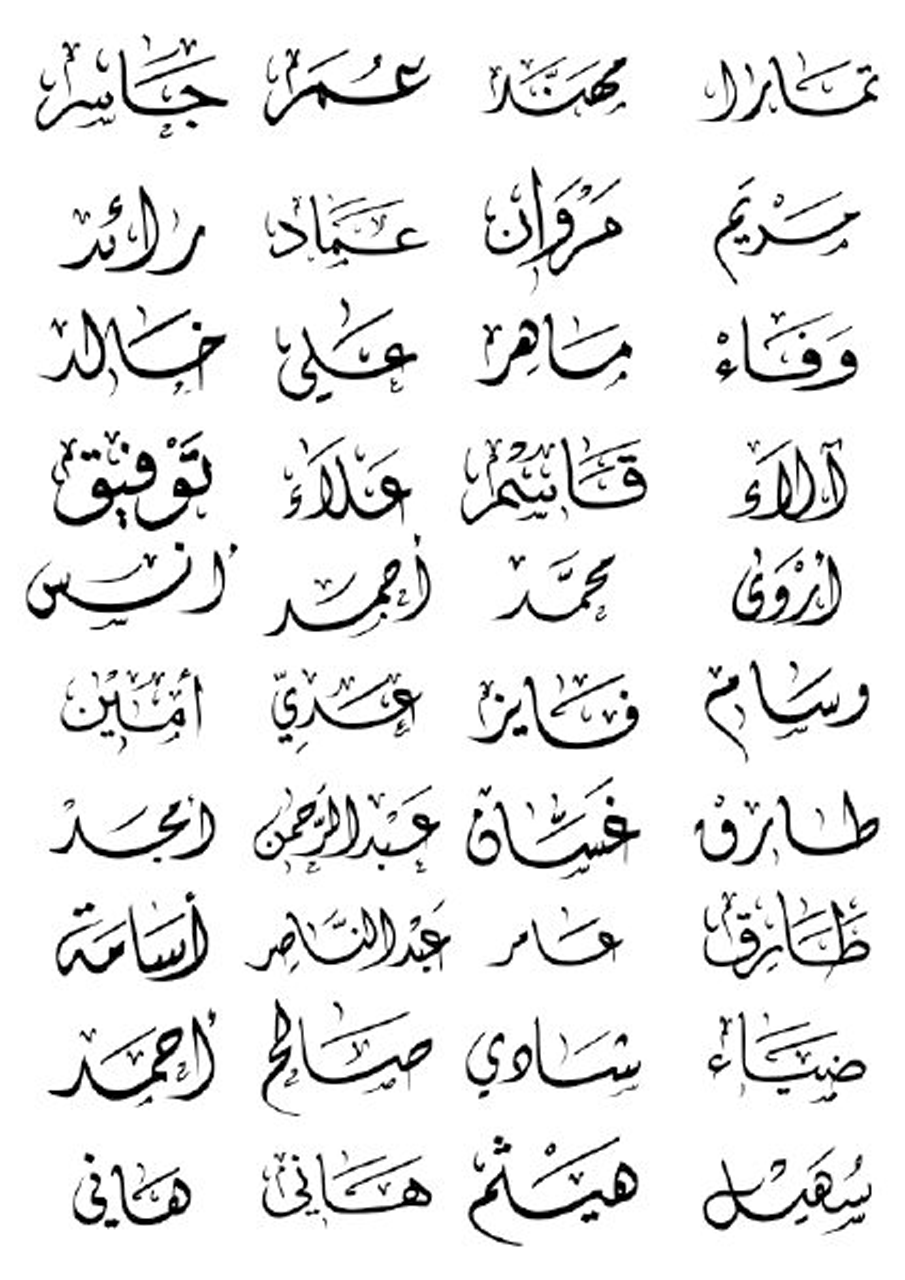 تمارا مهنَّد عُمَر جَاسر
مَرْيَم مَرْوَان عمَاد رائد
وَفَاءْ مَاهِر عَلي خَالد
آلاَء قَاسِمْ عَلاَء تَوْفيق
أرْوَى محمَّد أحمَد أنس
وسَام فَايز عَدِيّ أمَيْن
طارقْ غَسَّان عَبْدالرَّحمن أمجَدْ
طَارِق عَامر عَبْدالنَّاصِر أسَامَة
ضيَاء شَادي صَالح أحمَد
سُهَيْل هَيْثم هَاني هَاني